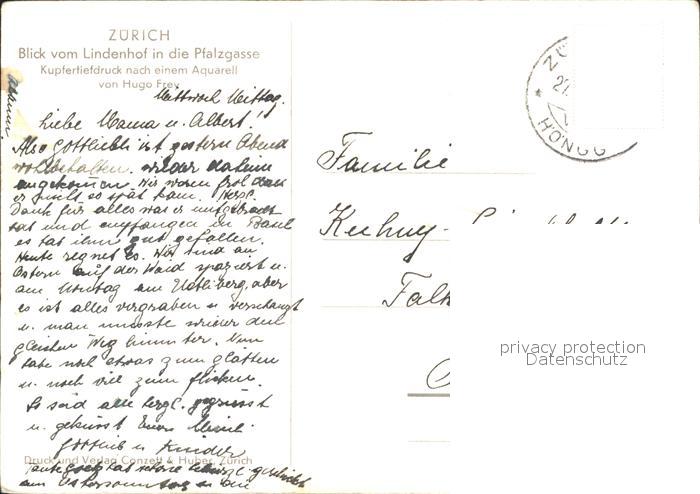 ZÜRICH
Blick vom Lindenhof in die Pfalzgasse
Kupfertiefdruck nach einem Aquarell
von Hugo Frey
Mittwoch Mittag.
Liebe Mama u. Albert!
Also Gottliebli ist gestern Abend
wohlbehalten wieder daheim
angekommen. Wir waren froh dass
er nicht so spät kam. Herzl.
Dank für alles was er mitgebracht
hat und empfangen in Basel
es hat ihm gut gefallen.
Heute regnet es. Wir sind an
Ostern auf der Waid spaziert u.
am Montag am Uetliberg, aber
es ist alles vergraben u. verschanzt
u. man musste wieder den
gleichen Weg hinunter. Nun
habe noch etwas zum glätten
u. noch viel zum flicken.
Es seid alle herzl. gegrüsst
u. geküsst Eure
Gottlieb u. Kinder
Druck und Verlag Conzett & Huber, Zürich
am Ostersonntag
Familie
ZÜ
HÖNGG
privacy protection
Datenschutz